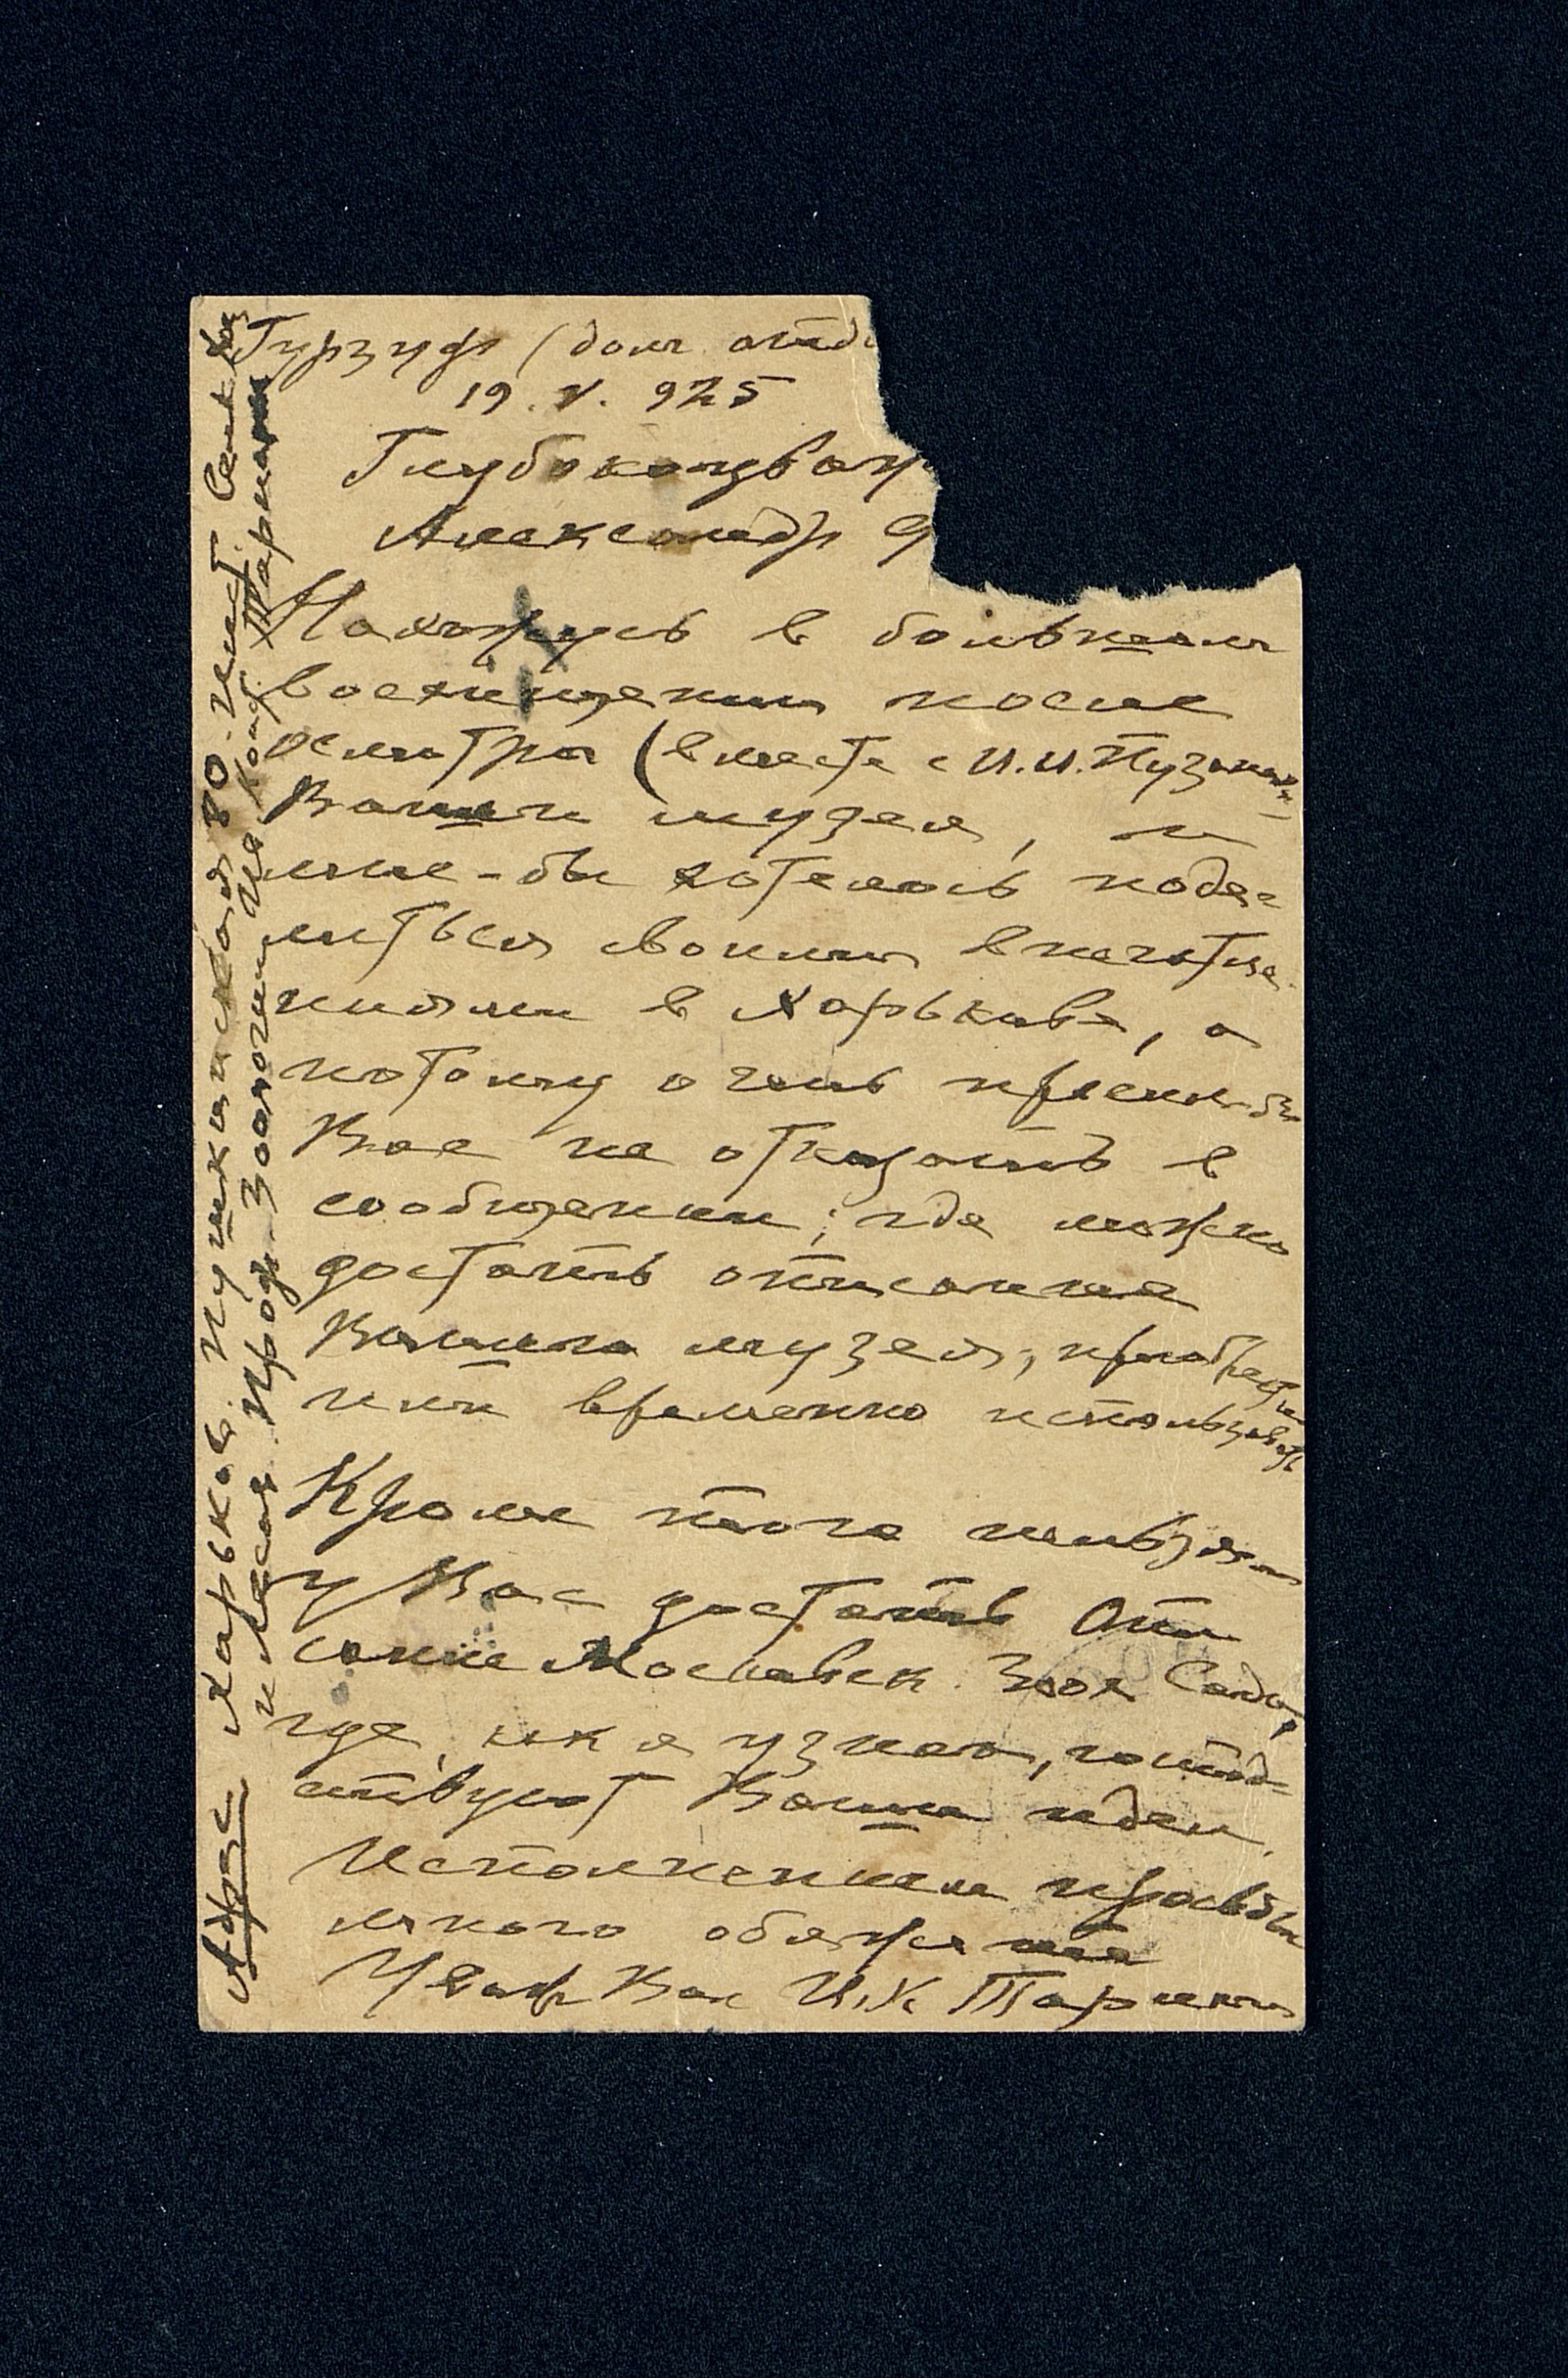 Гурзуф (дом отд
19. V. 925
Глубокоуваж
Александр Ф
Нахожусь в большом
восхищении после
осмотра (вместе с И.И. Пузановым
Вашего музея, и
мне-бы хотелось поде-
литься своими впечатле-
ниями в Харькове, а
потому очень просил-бы
Вас не отказать в
сообщении, где можно
достать описание
Вашего музея, приобрести
или временно использовать
Кроме того нельзя-ли
у Вас достать Опи
сание Московск. Зоол Сада,
где, как я узнал, господ-
ствуют Ваши идеи.
Исполнением просьбы
много обяжете
Уваж Вас И.К. Тарнани
Адрес Харьков. Пушкинская 80. Инст. Сельск Хоз
и Лесов. Проф. Зоологии Ив Конд. Тарнани